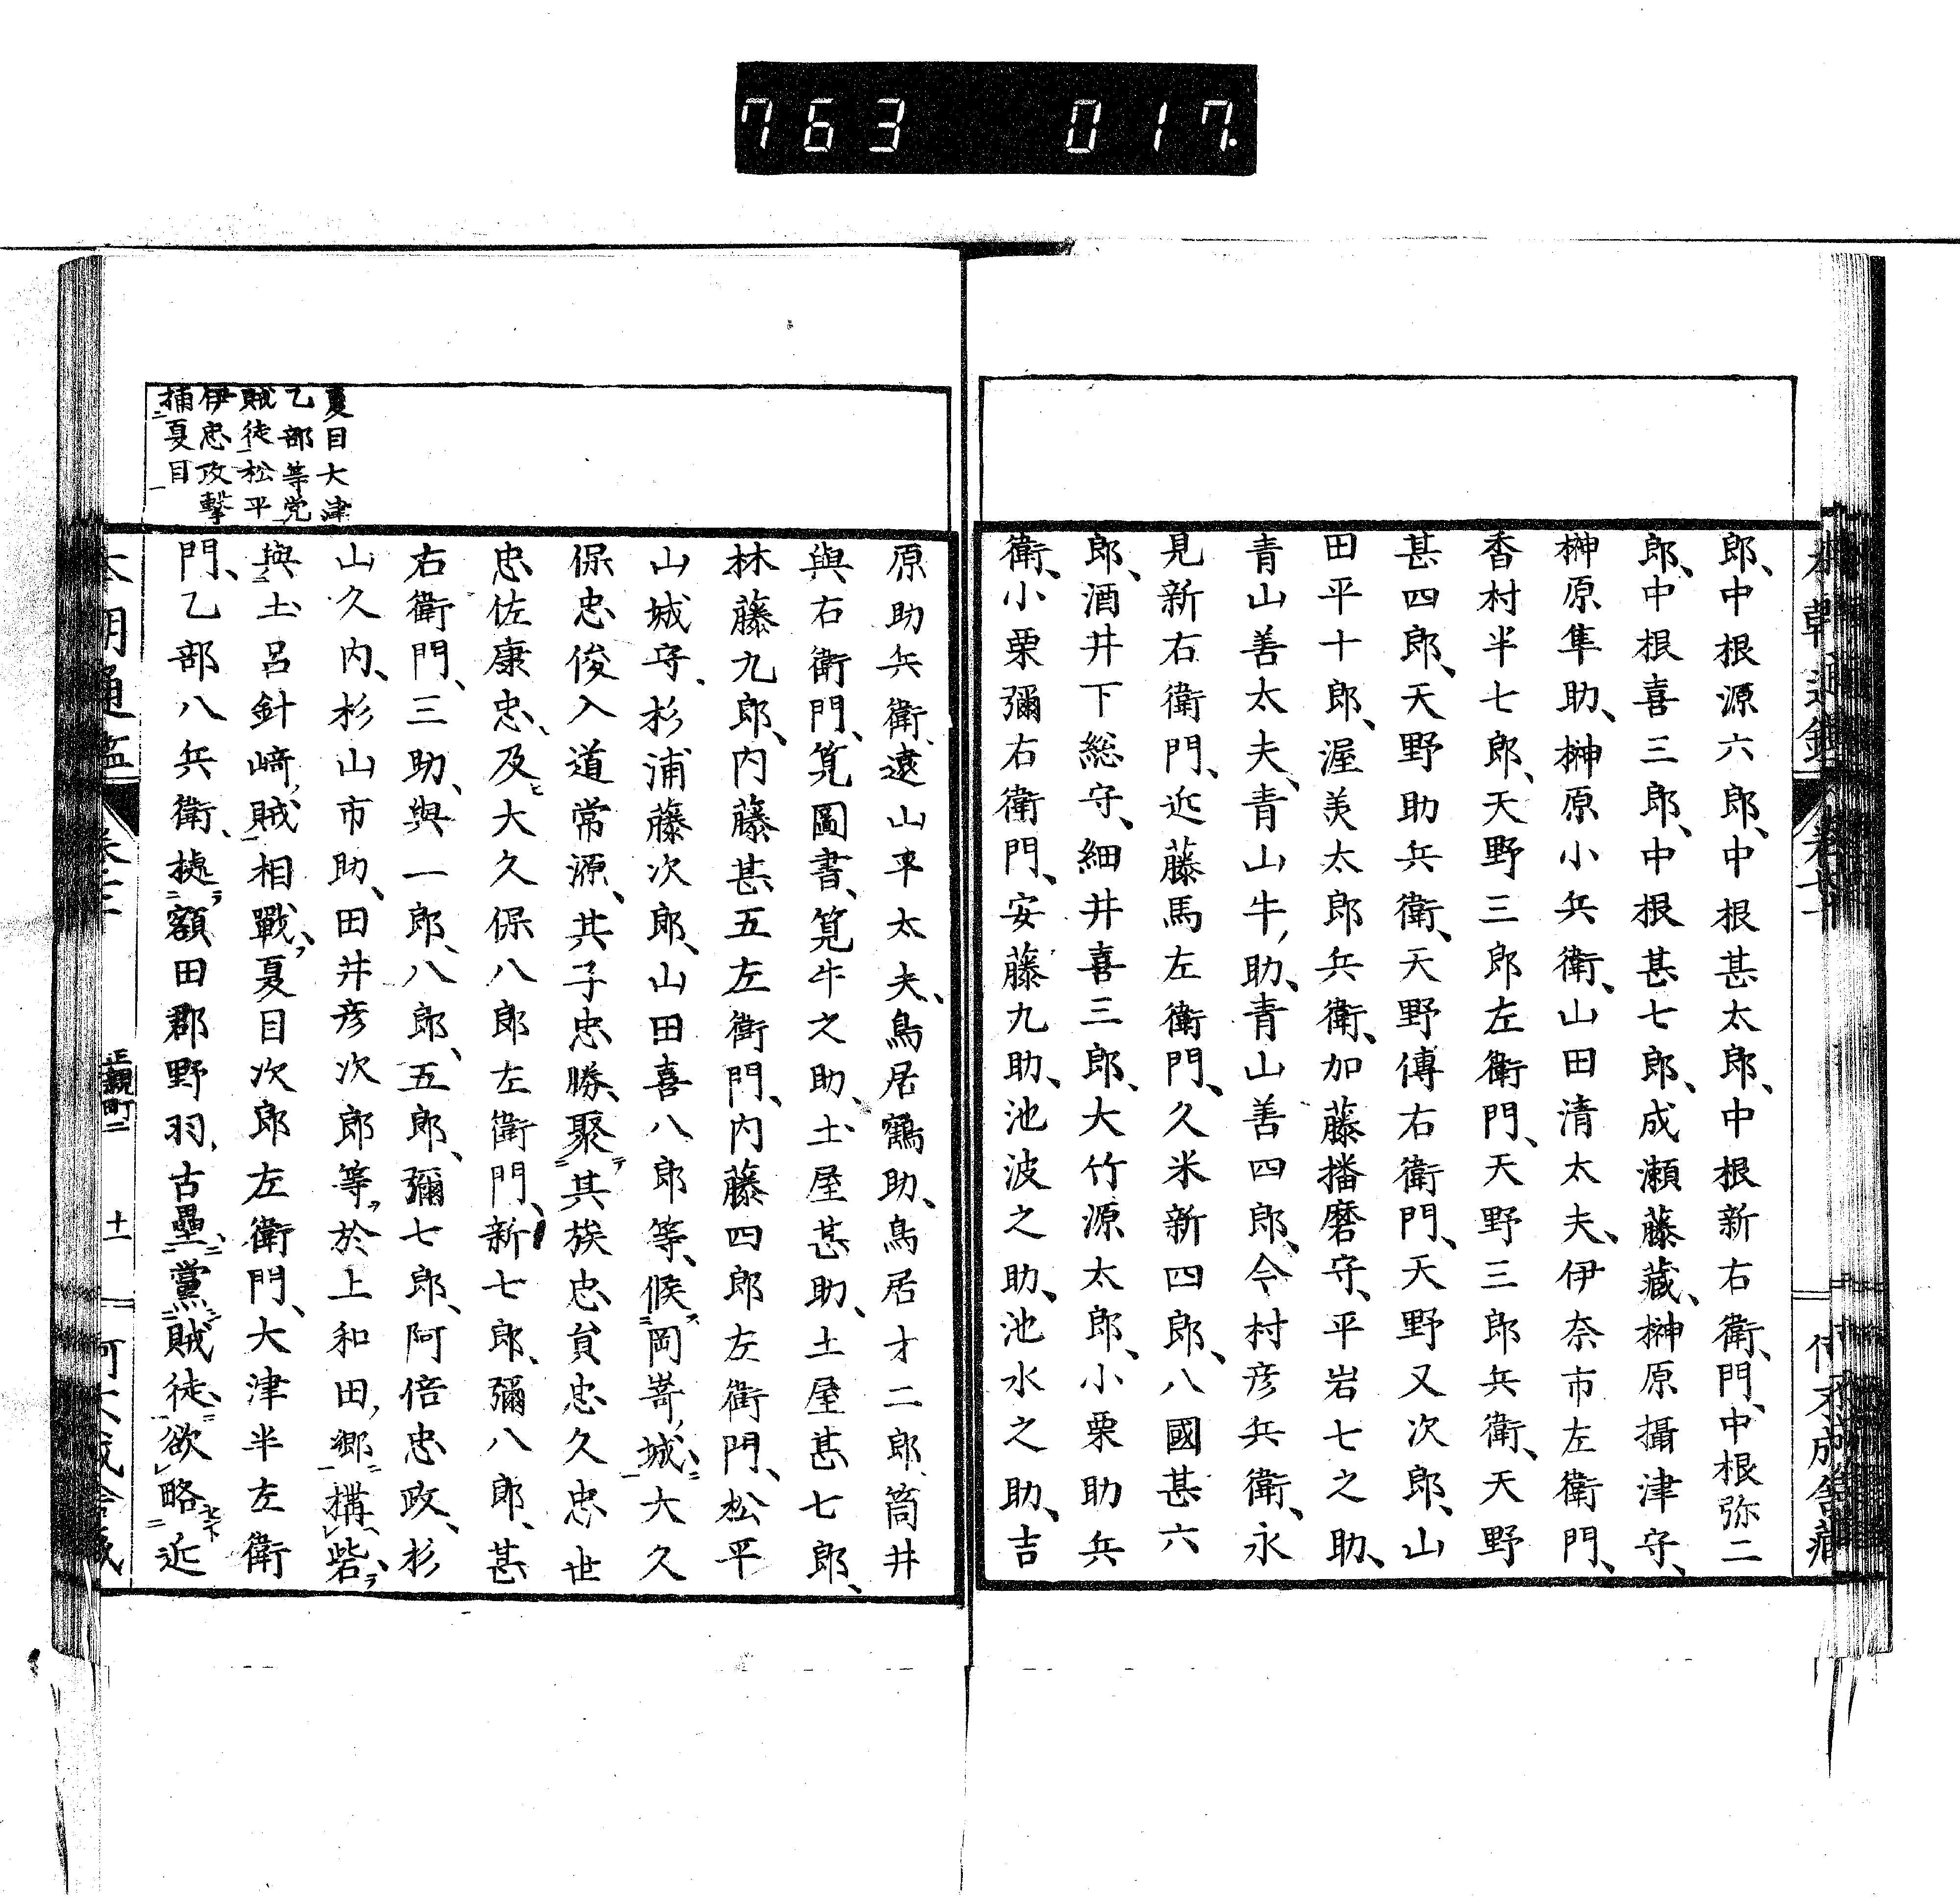 763 017.
郎、中根源六郎、中根甚太郎、中根新右衛門、中根弥二
郎、中根喜三郎、中根甚七郎、成瀬藤蔵、榊原攝津守、
榊原隼助、榊原小兵衛、山田清太夫、伊奈市左衛門、
香村半七郎、天野三郎左衛門、天野三郎兵衛、天野
甚四郎、天野助兵衛、天野傳右衛門、天野又次郎、山
田平十郎、渥美太郎兵衛、加藤播磨守、平岩七之助、
青山善太夫、青山牛助、青山善四郎、今村彦兵衛、永
見新右衛門、近藤馬左衛門、久米新四郎、八國甚六
郎、酒井下総守、細井喜三郎、大竹源太郎、小栗助兵
衛、小栗彌右衛門、安藤九助、池波之助、池水之助、吉
夏目大津
乙部等党
賊徒松平
伊忠攻撃
捕夏目
原助兵衛、遠山平太夫、鳥居鶴助、鳥居才二郎、筒井
與右衛門、筧圖書、筧牛之助、土屋甚助、土屋甚七郎、
林藤九郎、内藤甚五左衛門、内藤四郎左衛門、松平
山城守、杉浦藤次郎、山田喜八郎等、候岡嵜城、大久
保忠俊入道常源、其子忠勝、聚其族忠貟忠久忠世
忠佐康忠、及大久保八郎左衛門、新七郎、彌八郎、甚
右衛門、三助、與一郎、八郎、五郎、彌七郎、阿倍忠政、杉
山久内、杉山市助、田井彦次郎等、於上和田郷構砦、
與土呂針﨑賊相戰、夏目次郎左衛門、大津半左衛
門、乙部八兵衛、據額田郡野羽古壘黨賊徒、欲略近
十一